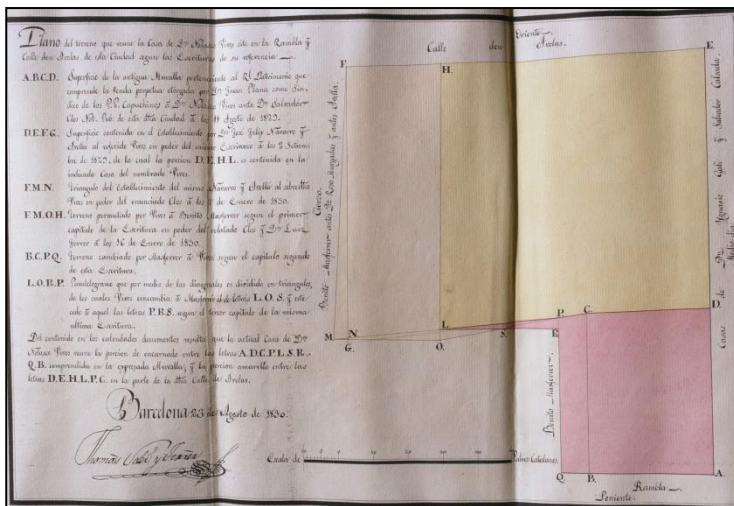 Plano del terreno que reune la Casa de Dn. Nolasco Vives sita en la Rambla y
Calle den Arolas de esta Ciudad segun las Escrituras de su referencia
A.B.C.D. Superficie de la antigua Muralla perteneciente al Rl. Patrimonio que
comprende la venda perpetua otorgada por Dn. Juan Plana como Sin-
dico de los P.P. Capuchinos á Dn. Nolasco Vives ante Dn. Salvador
Clos Not. Pub. de esta Ciudad á los 11 Agosto de 1829.
D.E.F.G. Superficie contenida en el Establecimiento por
al referido Vives en poder del mismo Escribano á los 2 Setiem-
bre de 1829, de la cual la porcion D.E.H.L. es contenida en la
indicada Casa del nombrado Vives.
F.M.N. Triangulo del Establecimiento del mismo al
Vives en poder del enunciado Clos á los de Enero de 1830.
F.M.O.H. Terreno permutado por Vives á Benito Masferrer segun el primer
capitulo de la Escritura en poder del Clos y Dn. Luis
Ferrer á los 16 de Enero de 1830.
B.C.P.Q. Terreno cambiado por Masferrer á Vives segun el capitulo segundo
de esta Escritura.
L.O.R.P. que por medio de las diagonales es dividido en triangulos,
de los cuales Vives á Masferrer el de letras L.O.S. y este
á aquel las letras P.R.S. segun el tenor capitulo de la misma
ultima Escritura.
Del contenido en los documentos resulta que la actual Casa de Dn.
Nolasco Vives reune la porcion de encarnado entre las letras A.D.C.P.L.S.R.
Q.B. comprendida en la expresada Muralla; y la porcion amarilla entre las
letras D.E.H.L.P.C. en la parte de la Calle de Arolas.
Barcelona 23 de Agosto de 1830.
Escala de Palmos Catalanes.
Oriente
Calle den Arolas.
F.
H.
E.
Cierzo.
Benito Masferrer antes Dn. y antes
Casas de Dn. Ygnacio y Salvador
Medio dia
M
N
G.
L
O.
S.
P.
C.
R.
D.
Benito Masferrer
Q
B.
A.
Rambla
Poniente